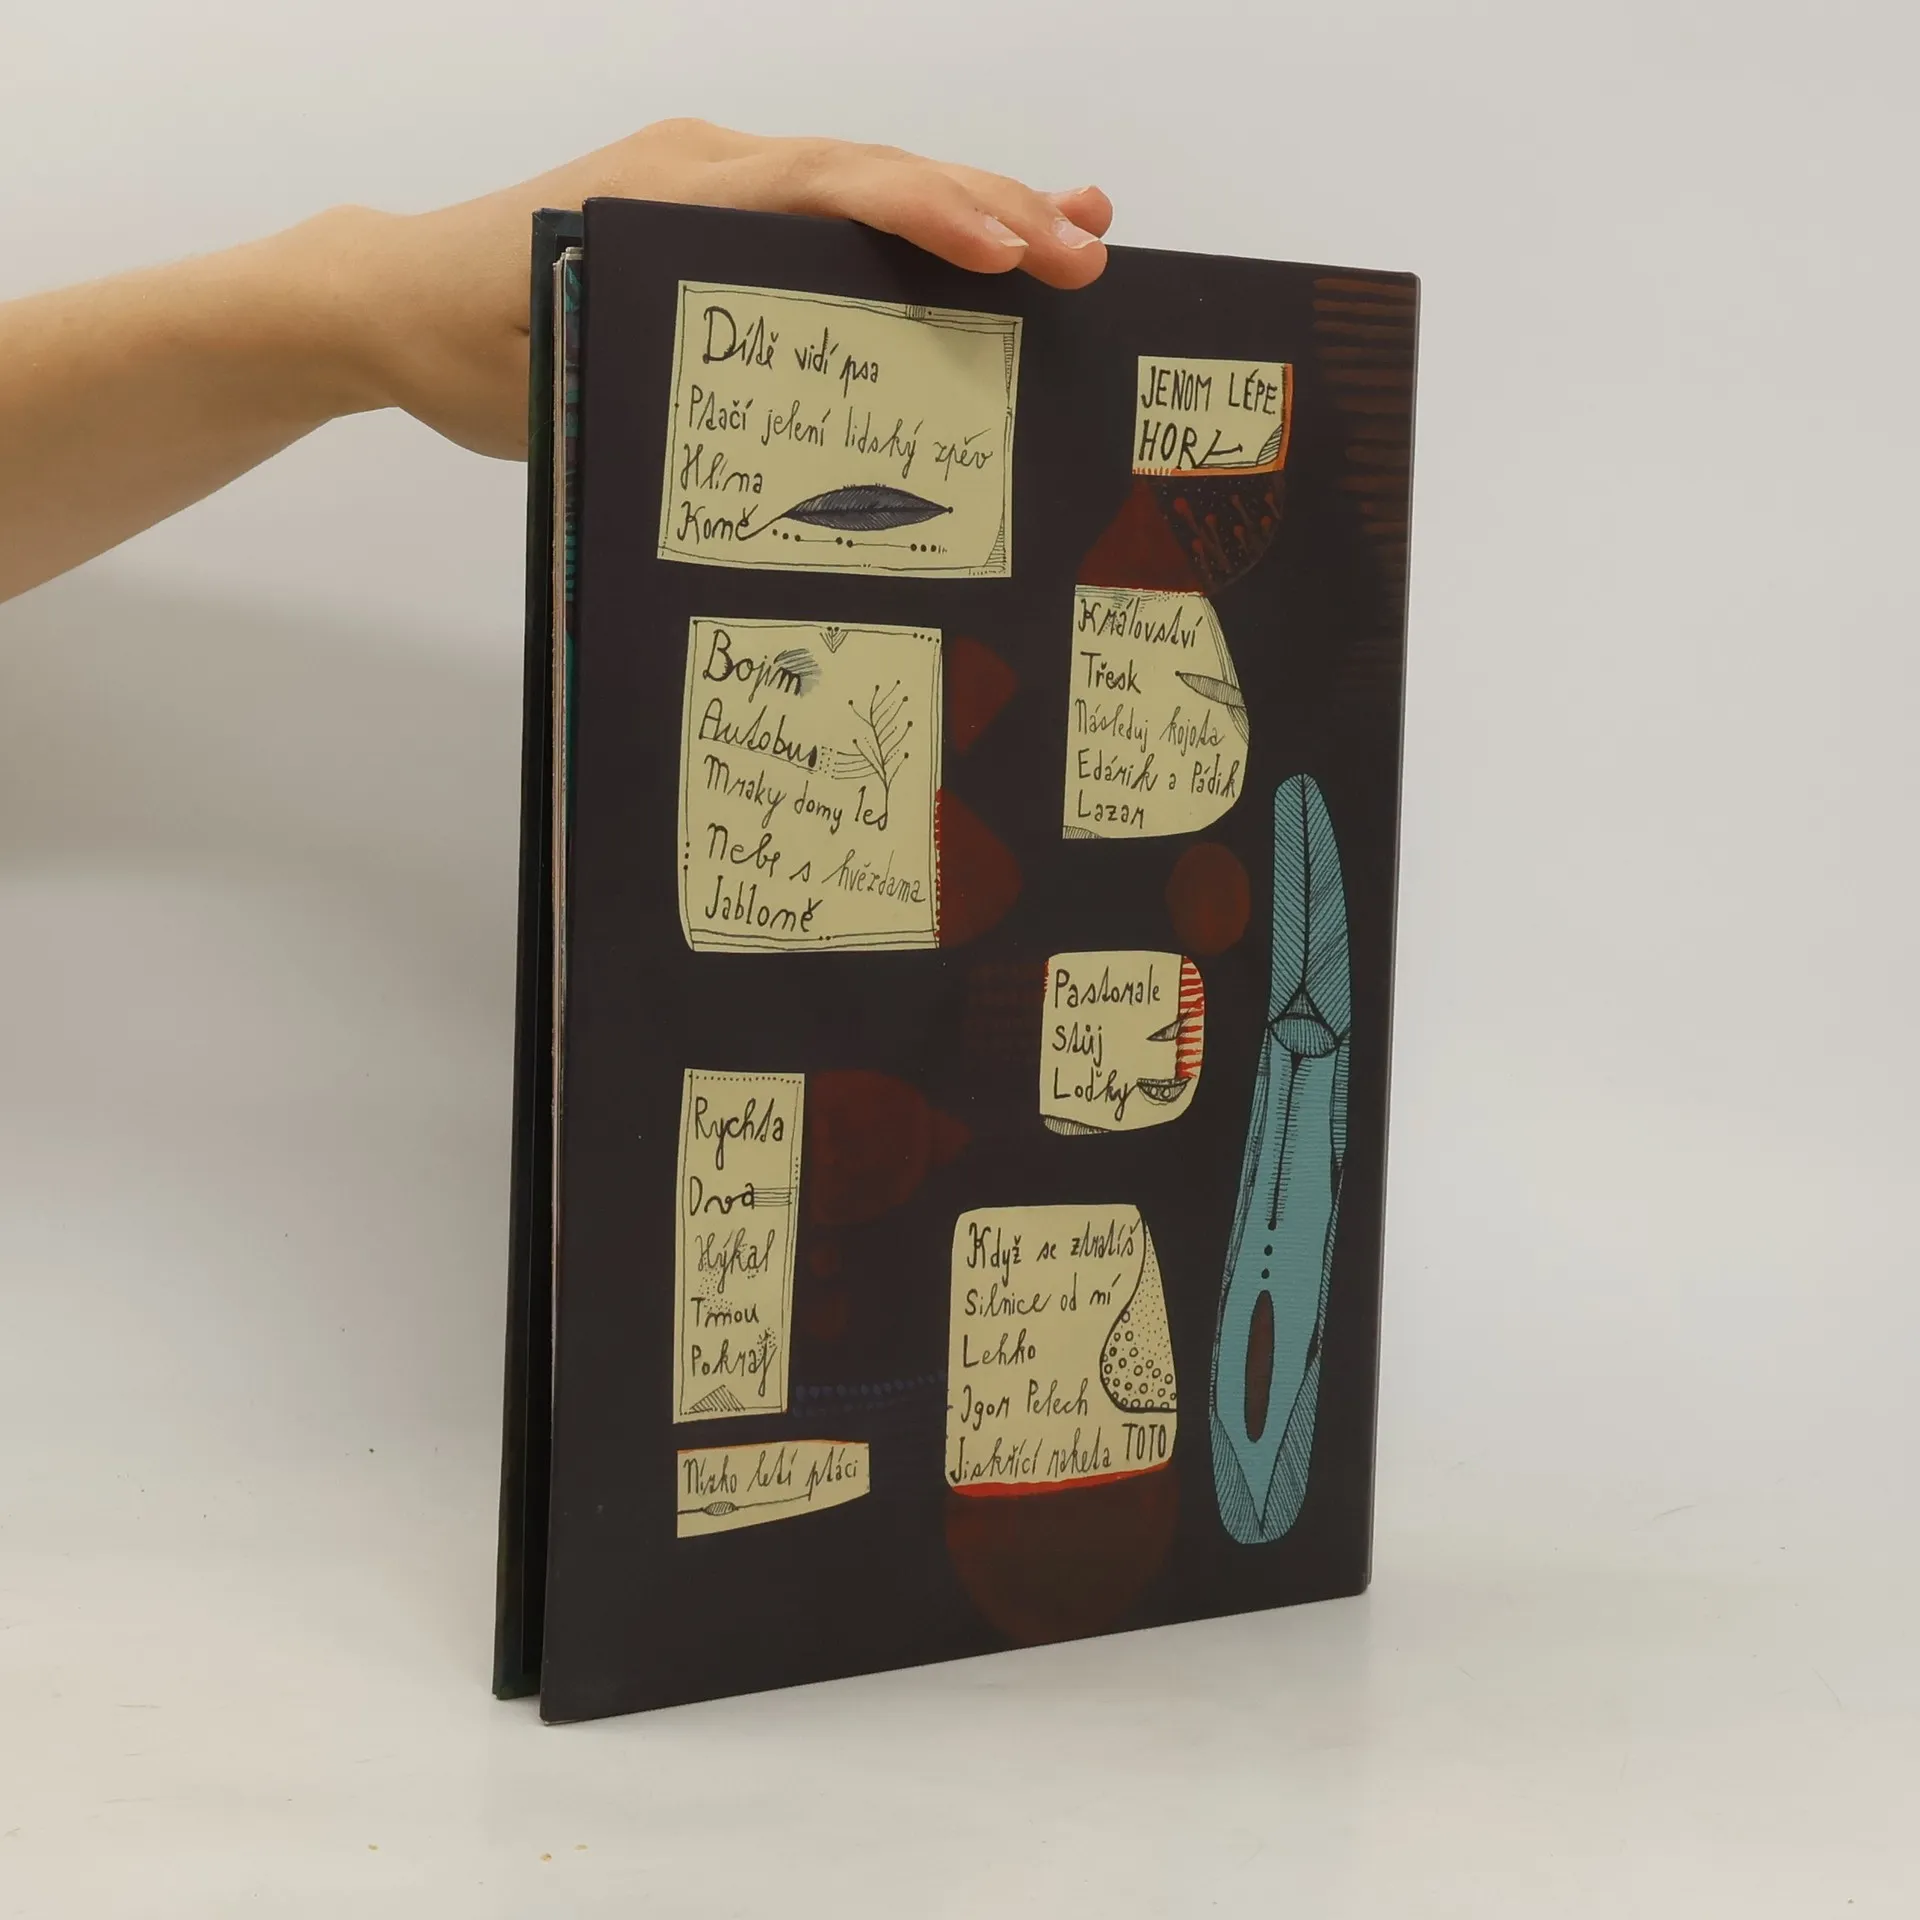 Dítě vidí psa
Ptačí jelení lidský zpěv
Hlína
Koně
Bojím
Autobus
Mraky domy les
Nebe s hvězdama
Jabloně
Rychta
Dva
Hýkal
Tmou
Pokraj
Nízko letí ptáci
JENOM LÉPE
HOŘ
Království
Třesk
Následuj kojota
Edárik a Pádik
Lazar
Pastorale
Stůj
Loďky
Když se ztratíš
Silnice od ní
Lehko
Igor Pelech
Jiskřící raketa TOTO